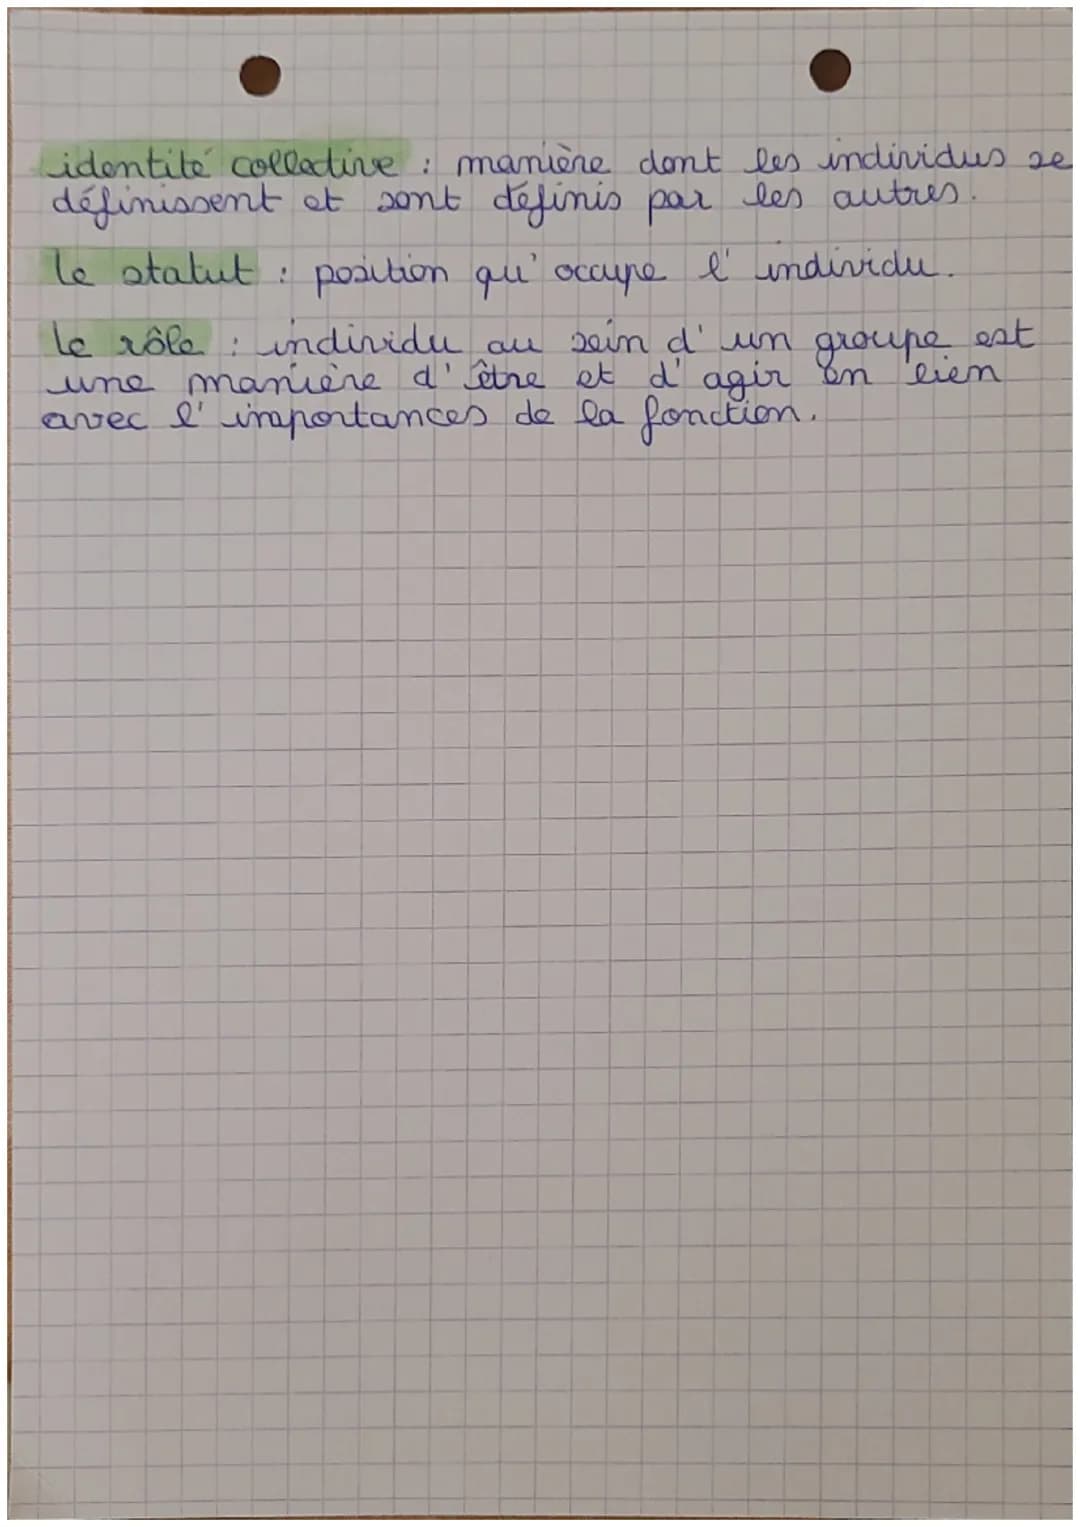 identité collective : manière dont les individus se
définissent et sont définis par les autres.
le statut : position qu'occupe l'individu.
le rôle : individu au sein d'un groupe est
une manière d'être et d'agir en lien
avec l'importances de la fonction.